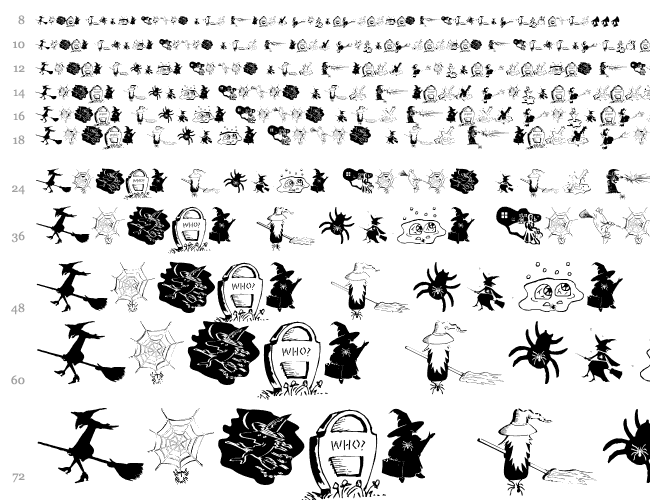 8
10
12
14
16
18
24
36 WHO?
48 WHO?
60 WHO?
72 WHO?